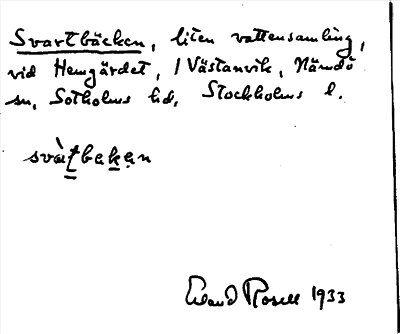 Svartbäcken, liten vattensamling,
vid Hemgärdet, / Västanvik, Nämdö
sn, Sotholms hd, Stockholms l.
svàtbakan
Erland Rosell 1933